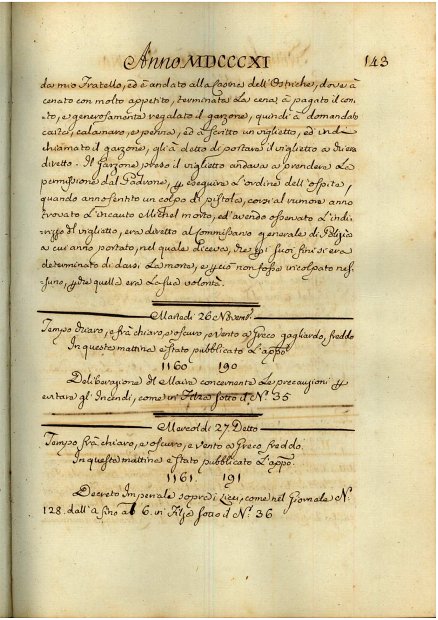 Anno MDCCCXI 143
da mio Fratello, ed à andato alla Corone dell'Ostriche, dove à
cenato con molto appetito, terminata La cena à pagato il con-
to, e generosamente regalato il garzone, quindi à domandato
carta, calamaro, e penna, ed à scritto un viglietto, ed indi
chiamato il garzone, gli à detto di portare il viglietto a chi era
diretto. Il Garzone preso il viglietto andava a prendere La
permissione dal Padrone, p eseguire L'ordine dell'ospite,
quando anno sentito un colpo di pistola, corsi al rumore anno
trovato L'incauto Michel morto, ed avendo osservato L'indi-
rizzo del viglietto, era diretto al Commissario generale di Polizia
a cui anno portato, nel quale diceva, che p suoi fini si era
determinato di darsi La morte, e p ciò non fosse incolpato nes-
suno, p che quella era La sua volontà.
Martedì 26 Novemb.
Tempo chiaro, e frà chiaro, e oscuro, e vento a Greco gagliardo, freddo
In questa mattina è stato pubblicato L'appo
1160 190
Deliberazione del Maire concernente Le precauzioni p
evitare gl'Incendi, come in Filza sotto il N.° 35
Mercoldì 27 Detto
Tempo frà chiaro, e oscuro, e vento a Greco freddo.
In questa mattina è stato pubblicato L'appo.
1161. 191
Decreto Imperiale sopra i Licei, come nel Giornale N.
128. dall'a fino al 6. in Filza sotto il N.° 36